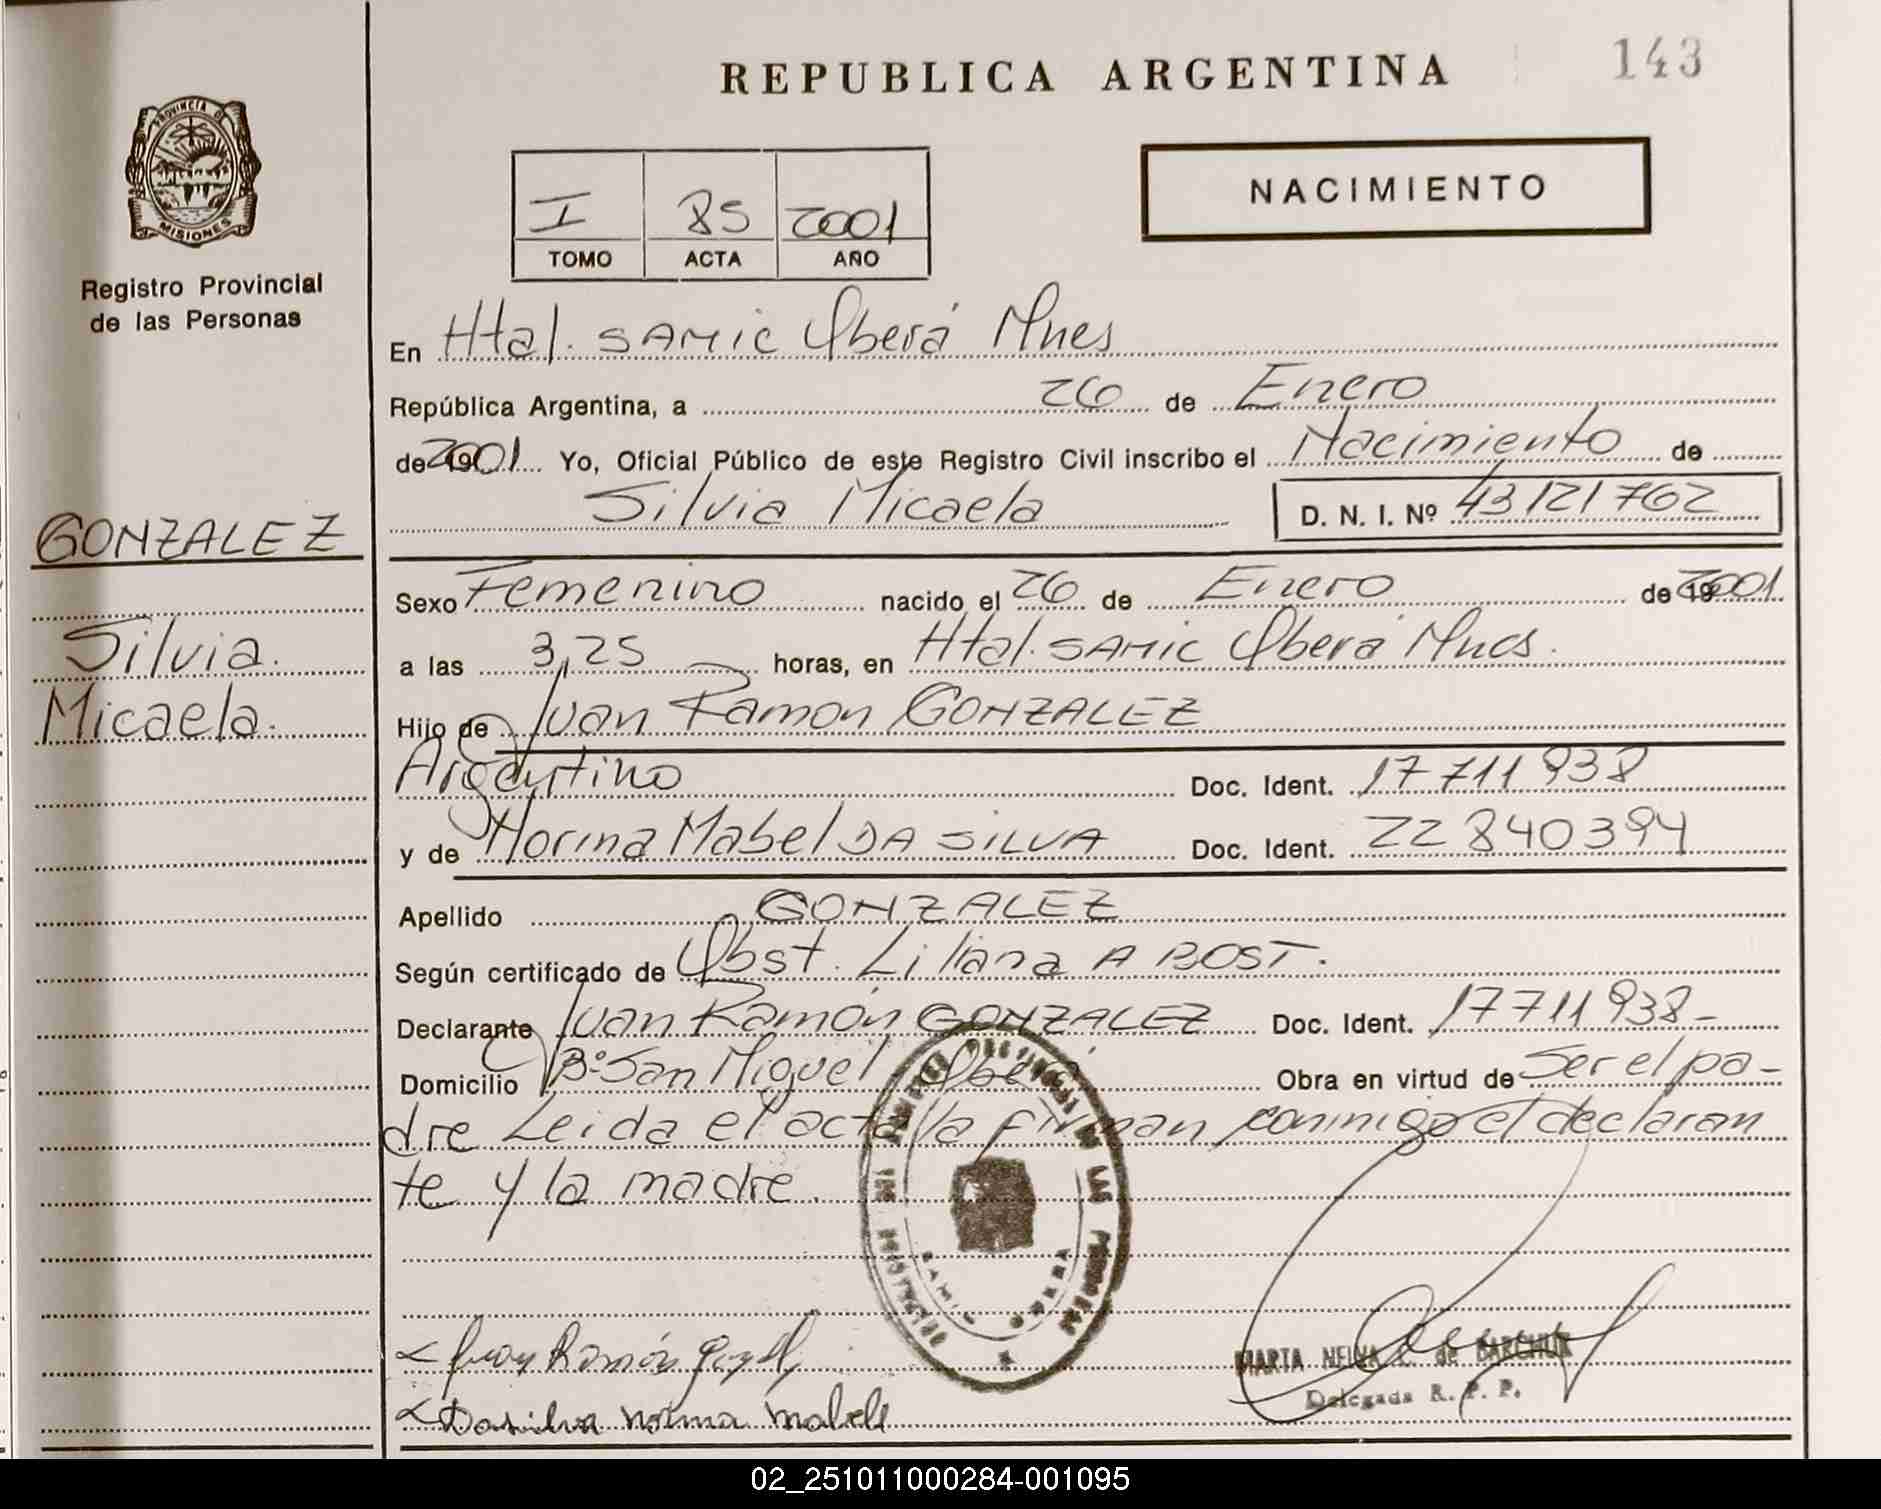 REPUBLICA ARGENTINA
143
PROVINCIA DE
MISIONES
Registro Provincial
de las Personas
I 85 2001
TOMO ACTA AÑO
NACIMIENTO
En Htal. SAMIC Oberá Mnes
República Argentina, a 26 de Enero
de 2001 Yo, Oficial Público de este Registro Civil inscribo el Nacimiento de
Silvia Micaela D. N. I. Nº 43121762
GONZALEZ
Silvia
Micaela.
Sexo Femenino nacido el 26 de Enero de 2001
a las 3,25 horas, en Htal. SAMIC Oberá Mnes.
Hijo de Juan Ramon GONZALEZ
Argentino Doc. Ident. 17711938
y de Norma Mabel DA SILVA Doc. Ident. 22840394
Apellido GONZALEZ
Según certificado de Obst. Liliana A BOST.
Declarante Juan Ramón GONZALEZ Doc. Ident. 17711938-
Domicilio Bº San Miguel Oberá Obra en virtud de Ser el pa-
dre Leida el acta la firman conmigo el declaran
te y la madre.
Juan Ramón
Dasilva norma mabel
MARTA de BARCHUK
Delegada R. P. P.
02_251011000284-001095